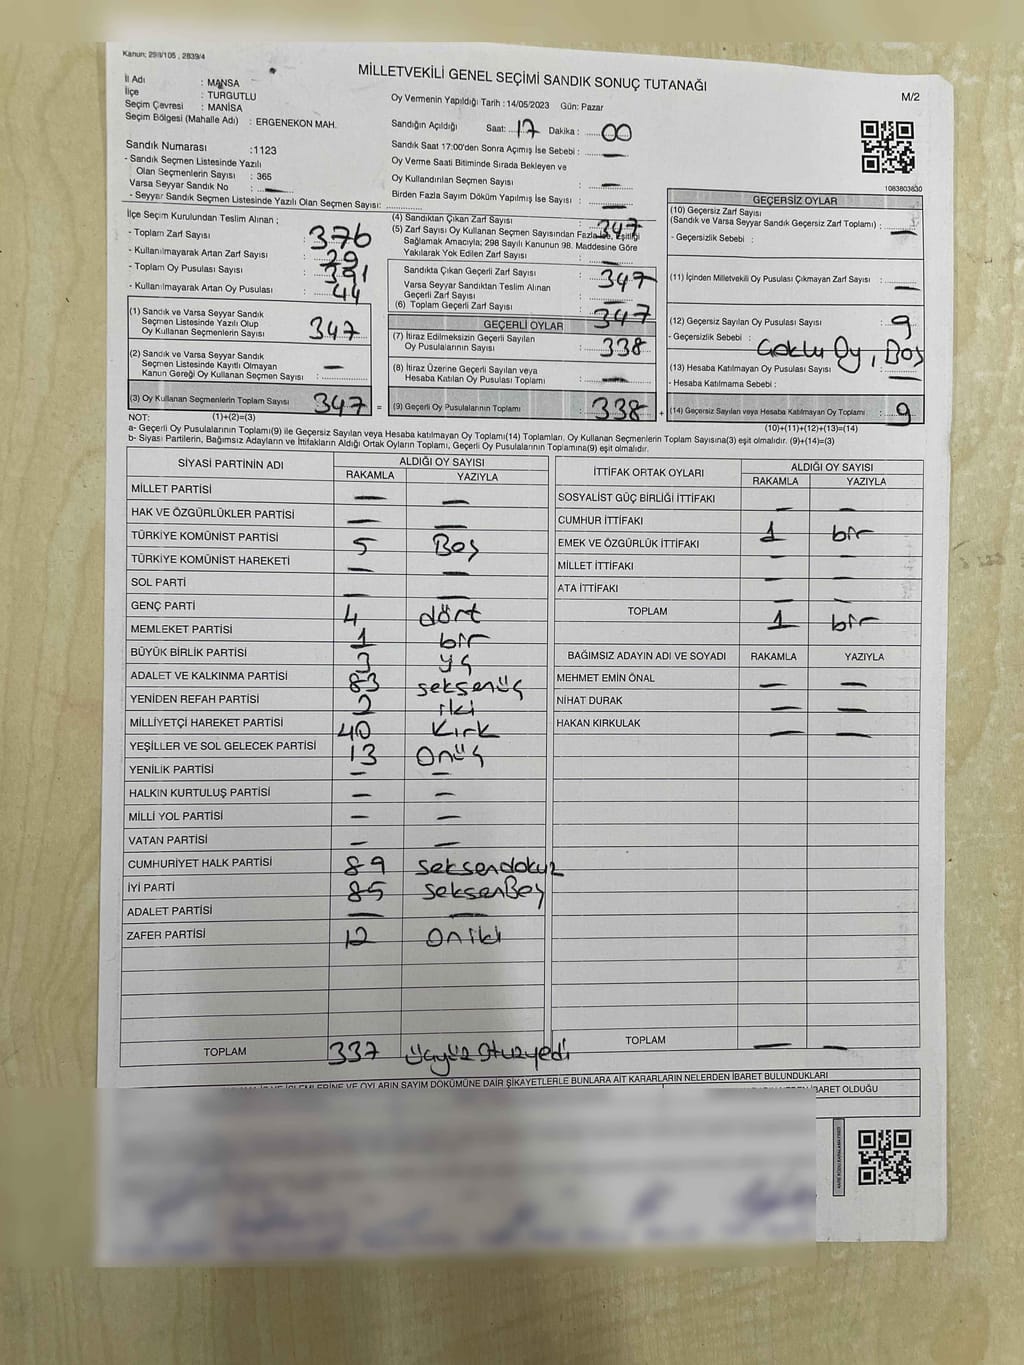 Kanun: 298/105 , 2839/4
MİLLETVEKİLİ GENEL SEÇİMİ SANDIK SONUÇ TUTANAĞI
M/2
İl Adı : MANİSA
İlçe : TURGUTLU
Seçim Çevresi : MANİSA
Seçim Bölgesi (Mahalle Adı) : ERGENEKON MAH.
Sandık Numarası :1123
- Sandık Seçmen Listesinde Yazılı
Olan Seçmenlerin Sayısı : 365
Varsa Seyyar Sandık No : —
- Seyyar Sandık Seçmen Listesinde Yazılı Olan Seçmen Sayısı:
Oy Vermenin Yapıldığı Tarih : 14/05/2023 Gün: Pazar
Sandığın Açıldığı Saat: 17 Dakika : 00
Sandık Saat 17:00'den Sonra Açımış İse Sebebi : —
Oy Verme Saati Bitiminde Sırada Bekleyen ve
Oy Kullandırılan Seçmen Sayısı : —
Birden Fazla Sayım Döküm Yapılmış İse Sayısı : —
1083803830
İlçe Seçim Kurulundan Teslim Alınan ;
- Toplam Zarf Sayısı : 376
- Kullanılmayarak Artan Zarf Sayısı : 29
- Toplam Oy Pusulası Sayısı : 391
- Kullanılmayarak Artan Oy Pusulası : 44
(1) Sandık ve Varsa Seyyar Sandık
Seçmen Listesinde Yazılı Olup
Oy Kullanan Seçmenlerin Sayısı 347
(2) Sandık ve Varsa Seyyar Sandık
Seçmen Listesinde Kayıtlı Olmayan
Kanun Gereği Oy Kullanan Seçmen Sayısı : —
(3) Oy Kullanan Seçmenlerin Toplam Sayısı 347 =
(4) Sandıktan Çıkan Zarf Sayısı : 347
(5) Zarf Sayısı Oy Kullanan Seçmen Sayısından Fazla İse, Eşitliği
Sağlamak Amacıyla; 298 Sayılı Kanunun 98. Maddesine Göre
Yakılarak Yok Edilen Zarf Sayısı : —
Sandıkta Çıkan Geçerli Zarf Sayısı : 347
Varsa Seyyar Sandıktan Teslim Alınan
Geçerli Zarf Sayısı : —
(6) Toplam Geçerli Zarf Sayısı : 347
GEÇERLİ OYLAR
(7) İtiraz Edilmeksizin Geçerli Sayılan
Oy Pusulalarının Sayısı : 338
(8) İtiraz Üzerine Geçerli Sayılan veya
Hesaba Katılan Oy Pusulası Toplamı : —
(9) Geçerli Oy Pusulalarının Toplamı : 338 +
GEÇERSİZ OYLAR
(10) Geçersiz Zarf Sayısı
(Sandık ve Varsa Seyyar Sandık Geçersiz Zarf Toplamı) : —
- Geçersizlik Sebebi :
(11) İçinden Milletvekili Oy Pusulası Çıkmayan Zarf Sayısı : —
(12) Geçersiz Sayılan Oy Pusulası Sayısı : 9
- Geçersizlik Sebebi : Çoklu Oy, Boş
(13) Hesaba Katılmayan Oy Pusulası Sayısı : —
- Hesaba Katılmama Sebebi :
(14) Geçersiz Sayılan veya Hesaba Katılmayan Oy Toplamı : 9
NOT: (1)+(2)=(3)
(10)+(11)+(12)+(13)=(14)
a- Geçerli Oy Pusulalarının Toplamı(9) ile Geçersiz Sayılan veya Hesaba katılmayan Oy Toplamı(14) Toplamları, Oy Kullanan Seçmenlerin Toplam Sayısına(3) eşit olmalıdır. (9)+(14)=(3)
b- Siyasi Partilerin, Bağımsız Adayların ve İttifakların Aldığı Ortak Oyların Toplamı, Geçerli Oy Pusulalarının Toplamına(9) eşit olmalıdır.
SİYASİ PARTİNİN ADI ALDIĞI OY SAYISI
RAKAMLA YAZIYLA
MİLLET PARTİSİ — —
HAK VE ÖZGÜRLÜKLER PARTİSİ — —
TÜRKİYE KOMÜNİST PARTİSİ 5 Beş
TÜRKİYE KOMÜNİST HAREKETİ — —
SOL PARTİ — —
GENÇ PARTİ 4 dört
MEMLEKET PARTİSİ 1 bir
BÜYÜK BİRLİK PARTİSİ 3 üç
ADALET VE KALKINMA PARTİSİ 83 seksenüç
YENİDEN REFAH PARTİSİ 2 iki
MİLLİYETÇİ HAREKET PARTİSİ 40 kırk
YEŞİLLER VE SOL GELECEK PARTİSİ 13 Onüç
YENİLİK PARTİSİ — —
HALKIN KURTULUŞ PARTİSİ — —
MİLLİ YOL PARTİSİ — —
VATAN PARTİSİ — —
CUMHURİYET HALK PARTİSİ 89 seksendokuz
İYİ PARTİ 85 seksenBeş
ADALET PARTİSİ — —
ZAFER PARTİSİ 12 Oniki
TOPLAM 337 üçyüz otuzyedi
İTTİFAK ORTAK OYLARI ALDIĞI OY SAYISI
RAKAMLA YAZIYLA
SOSYALİST GÜÇ BİRLİĞİ İTTİFAKI — —
CUMHUR İTTİFAKI 1 bir
EMEK VE ÖZGÜRLÜK İTTİFAKI — —
MİLLET İTTİFAKI — —
ATA İTTİFAKI — —
TOPLAM 1 bir
BAĞIMSIZ ADAYIN ADI VE SOYADI RAKAMLA YAZIYLA
MEHMET EMİN ÖNAL — —
NİHAT DURAK — —
HAKAN KIRKULAK — —
TOPLAM — —
İŞLEMLERİNE VE OYLARIN SAYIM DÖKÜMÜNE DAİR ŞİKAYETLERLE BUNLARA AİT KARARLARIN NELERDEN İBARET BULUNDUKLARI
İBARET OLDUĞU